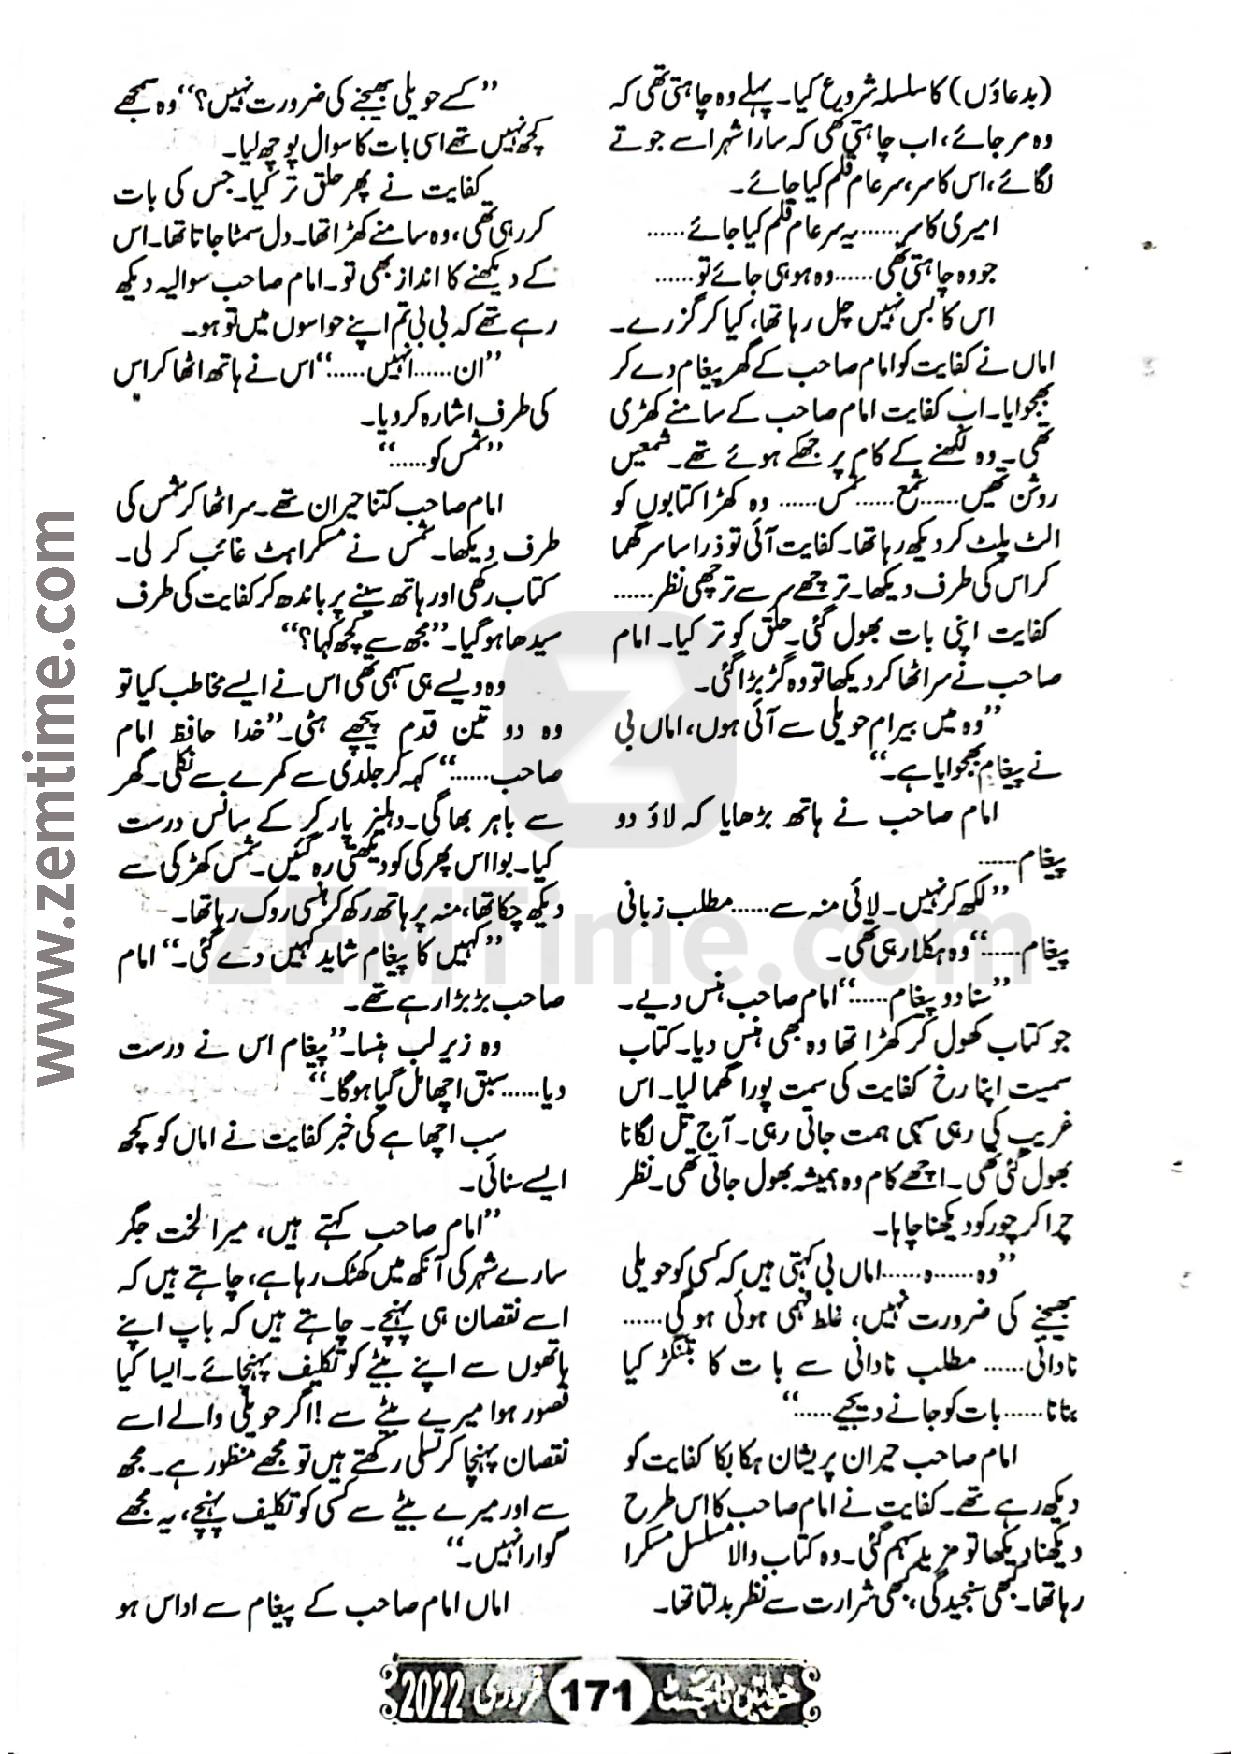 (بدعاؤں) کا سلسلہ شروع کیا۔ پہلے وہ چاہتی تھی کہ
وہ مر جائے، اب چاہتی تھی کہ سارا شہر اسے جوتے
لگائے، اس کا سر، سرعام قلم کیا جائے۔
امیری کا سر...... یہ سرعام قلم کیا جائے......
جو وہ چاہتی تھی...... وہ ہو ہی جائے تو......
اس کا بس نہیں چل رہا تھا، کیا کر گزرے۔
اماں نے کفایت کو امام صاحب کے گھر پیغام دے کر
بھجوایا۔ اب کفایت امام صاحب کے سامنے کھڑی
تھی۔ وہ لکھنے کے کام پر جھکے ہوئے تھے۔ شمعیں
روشن تھیں...... شمع...... شمس...... وہ کھڑا کتابوں کو
الٹ پلٹ کر دیکھ رہا تھا۔ کفایت آئی تو ذرا سا سر گھما
کر اس کی طرف دیکھا۔ ترچھے سر سے ترچھی نظر......
کفایت اپنی بات بھول گئی۔ حلق کو تر کیا۔ امام
صاحب نے سر اٹھا کر دیکھا تو وہ گڑبڑا گئی۔
”وہ میں بیرام حویلی سے آئی ہوں، اماں بی
نے پیغام بھجوایا ہے۔“
امام صاحب نے ہاتھ بڑھایا کہ لاؤ دو
پیغام......
”لکھ کر نہیں۔ لائی منہ سے...... مطلب زبانی
پیغام......“ وہ ہکلا رہی تھی۔
”سنا دو پیغام......“ امام صاحب ہنس دیے۔
جو کتاب کھول کر کھڑا تھا وہ بھی ہنس دیا۔ کتاب
سمیت اپنا رخ کفایت کی سمت پورا گھما لیا۔ اس
غریب کی رہی سہی ہمت جاتی رہی۔ آج تل لگانا
بھول گئی تھی۔ اچھے کام وہ ہمیشہ بھول جاتی تھی۔ نظر
چرا کر چور کو دیکھنا چاہا۔
”وہ...... وہ...... اماں بی کہتی ہیں کہ کسی کو حویلی
بھیجنے کی ضرورت نہیں، غلط فہمی ہوئی ہو گی......
نادانی...... مطلب نادانی سے بات کا بتنگڑ کیا
بنانا...... بات کو جانے دیجیے......“
امام صاحب حیران پریشان ہکا بکا کفایت کو
دیکھ رہے تھے۔ کفایت نے امام صاحب کا اس طرح
دیکھنا دیکھا تو مزید سہم گئی۔ وہ کتاب والا مسلسل مسکرا
رہا تھا۔ کبھی سنجیدگی، کبھی شرارت سے نظر بدلتا تھا۔
”کے حویلی بھیجنے کی ضرورت نہیں؟“ وہ سمجھے
کچھ نہیں تھے اسی بات کا سوال پوچھ لیا۔
کفایت نے پھر حلق تر کیا۔ جس کی بات
کر رہی تھی، وہ سامنے کھڑا تھا۔ دل سمٹا جاتا تھا۔ اس
کے دیکھنے کا انداز بھی تو۔ امام صاحب سوالیہ دیکھ
رہے تھے کہ بی بی تم اپنے حواسوں میں تو ہو۔
”ان...... انہیں......“ اس نے ہاتھ اٹھا کر اس
کی طرف اشارہ کر دیا۔
”شمس کو......“
امام صاحب کتنا حیران تھے۔ سر اٹھا کر شمس کی
طرف دیکھا۔ شمس نے مسکراہٹ غائب کر لی۔
کتاب رکھی اور ہاتھ سینے پر باندھ کر کفایت کی طرف
سیدھا ہو گیا۔ ”مجھ سے کچھ کہا؟“
وہ ویسے ہی سہمی تھی اس نے ایسے مخاطب کیا تو
وہ دو تین قدم پیچھے ہٹی۔ ”خدا حافظ امام
صاحب......“ کہہ کر جلدی سے کمرے سے نکلی۔ گھر
سے باہر بھاگی۔ دہلیز پار کر کے سانس درست
کیا۔ بوا اس پھرکی کو دیکھتی رہ گئیں۔ شمس کھڑکی سے
دیکھ چکا تھا، منہ پر ہاتھ رکھ کر ہنسی روک رہا تھا۔
”کہیں کا پیغام شاید کہیں دے گئی۔“ امام
صاحب بڑبڑا رہے تھے۔
وہ زیر لب ہنسا۔ ”پیغام اس نے درست
دیا...... سبق اچھال گیا ہوگا۔“
سب اچھا ہے کی خبر کفایت نے اماں کو کچھ
ایسے سنائی۔
”امام صاحب کہتے ہیں، میرا لخت جگر
سارے شہر کی آنکھ میں کھٹک رہا ہے، چاہتے ہیں کہ
اسے نقصان ہی پہنچے۔ چاہتے ہیں کہ باپ اپنے
ہاتھوں سے اپنے بیٹے کو تکلیف پہنچائے۔ ایسا کیا
قصور ہوا میرے بیٹے سے! اگر حویلی والے اسے
نقصان پہنچا کر تسلی رکھتے ہیں تو مجھے منظور ہے۔ مجھ
سے اور میرے بیٹے سے کسی کو تکلیف پہنچے، یہ مجھے
گوارا نہیں۔“
اماں امام صاحب کے پیغام سے اداس ہو
خواتین ڈائجسٹ 171 فروری 2022
www.zemtime.com
ZEMTime.com